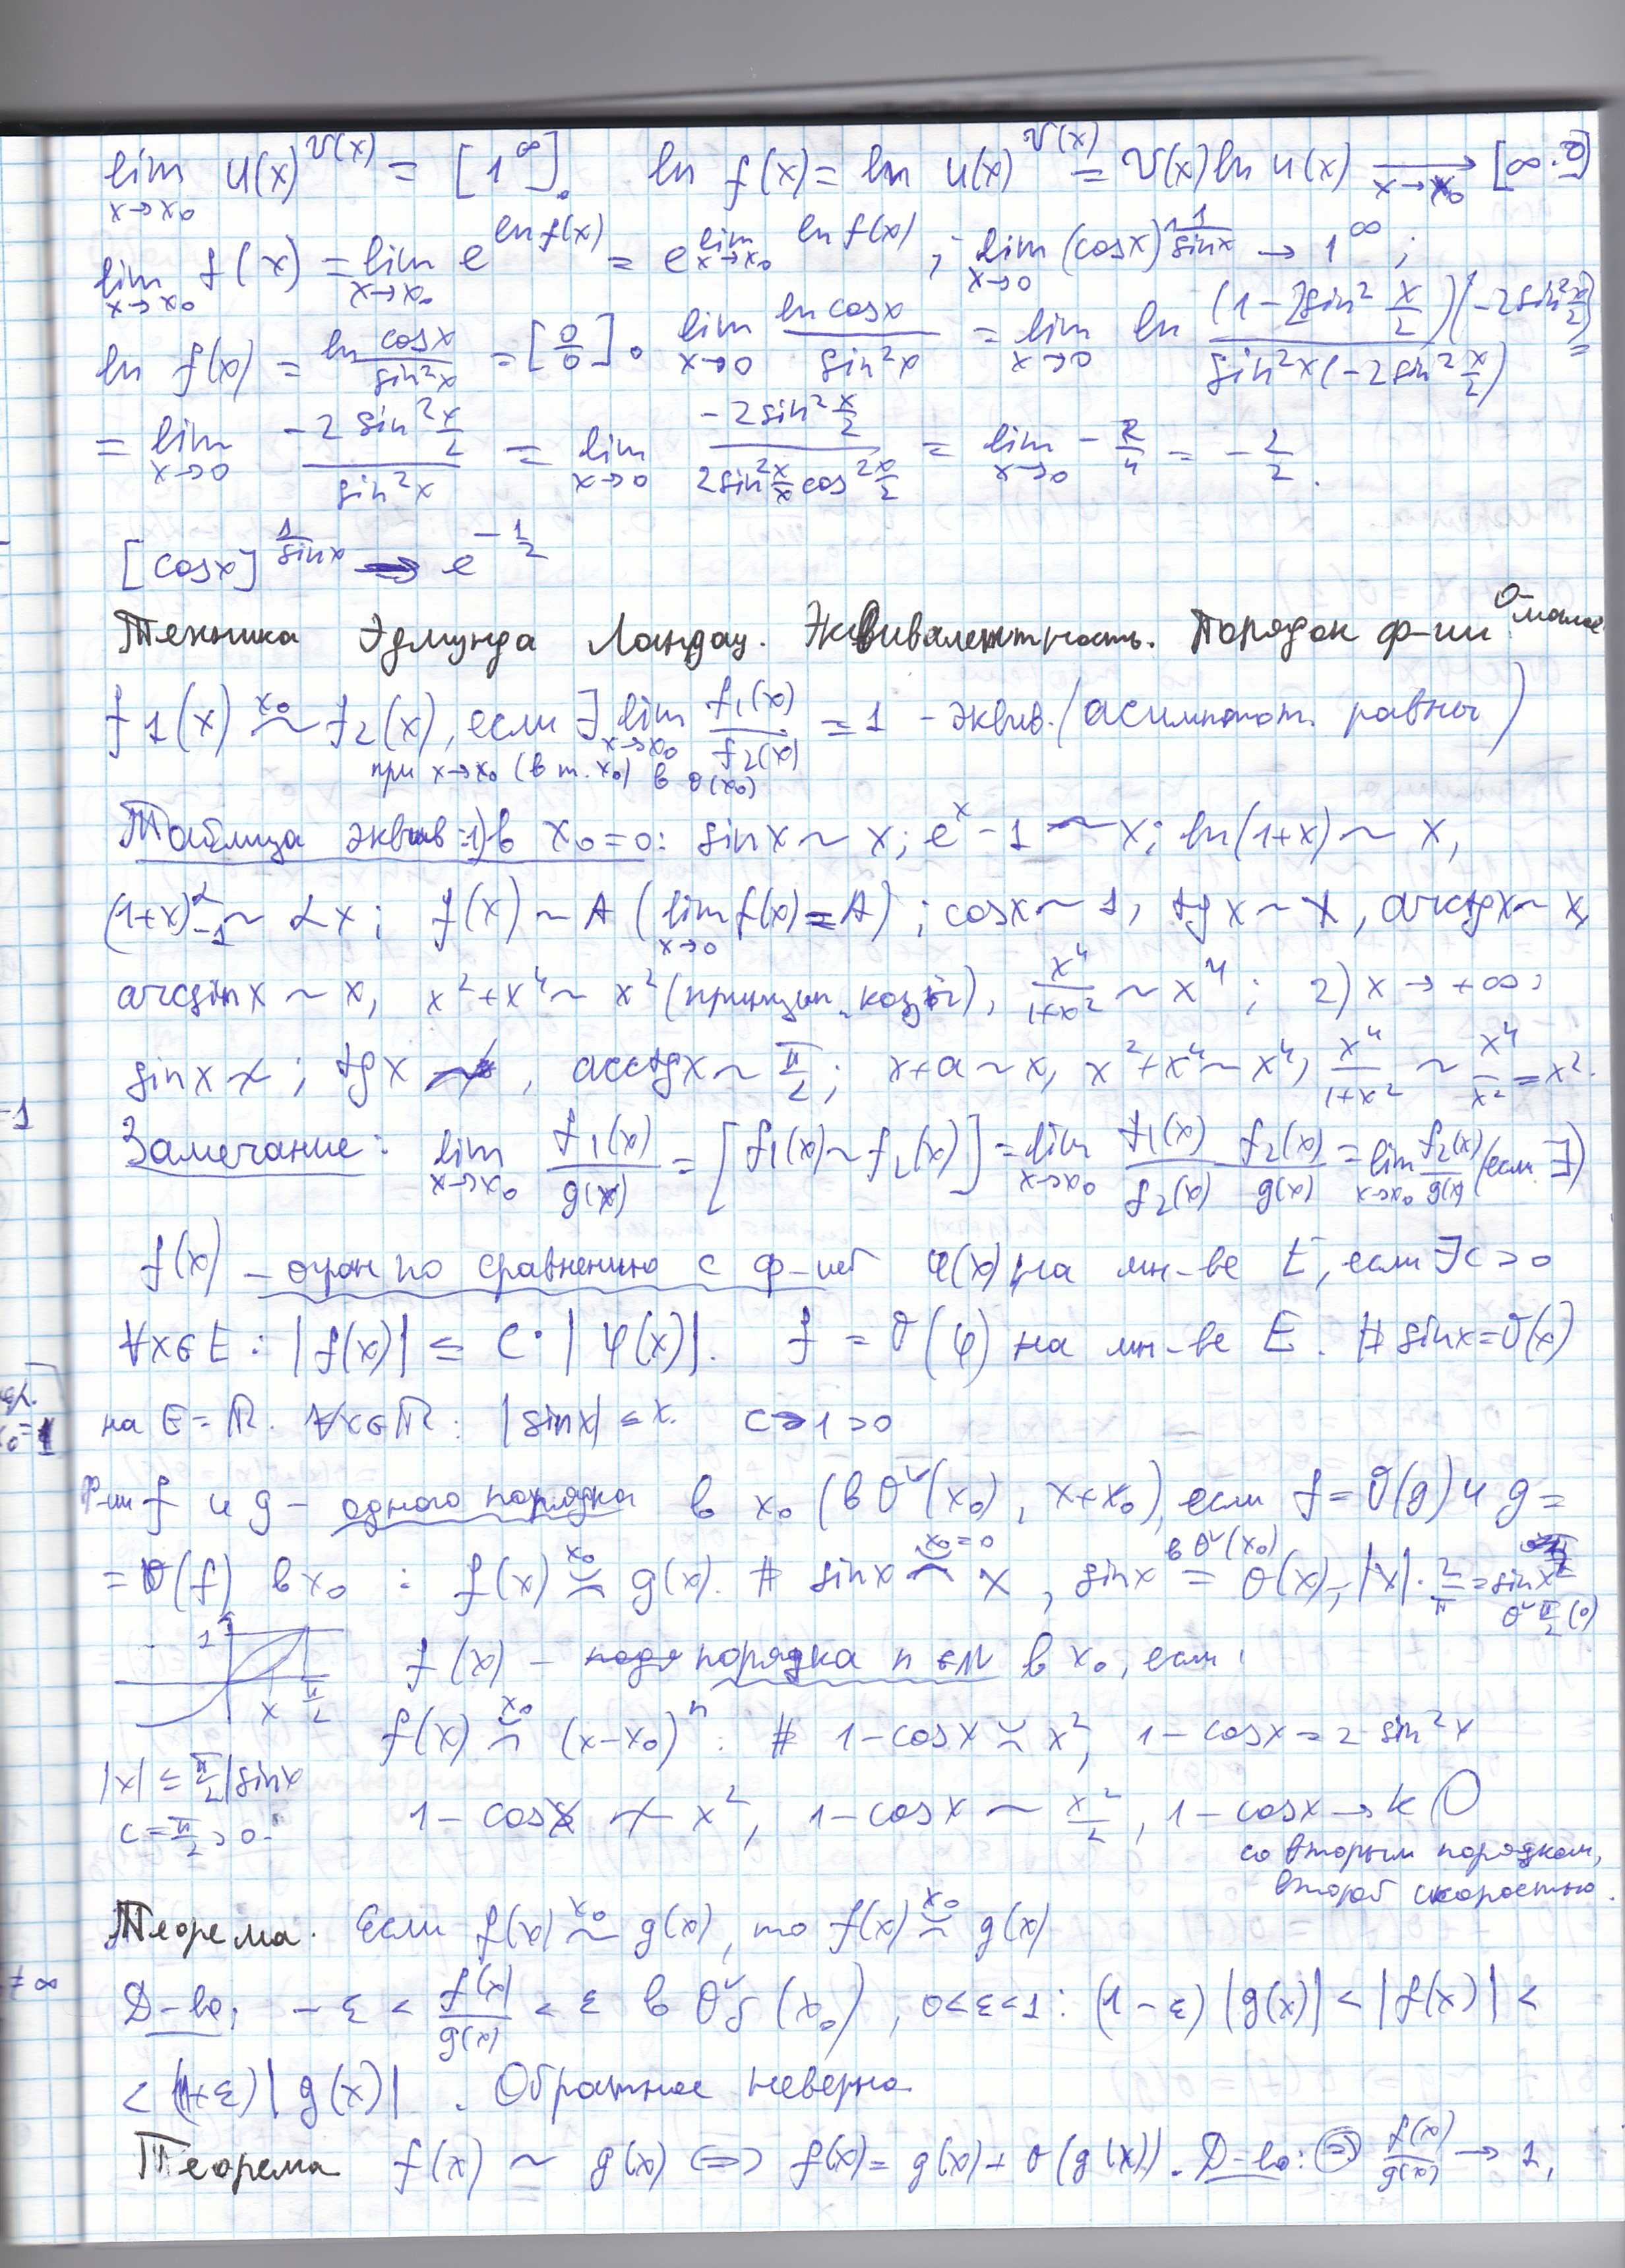 lim_{x→x₀} u(x)^{v(x)} = [1^∞]. ln f(x) = ln u(x)^{v(x)} = v(x) ln u(x) →_{x→x₀} [∞·0]
lim_{x→x₀} f(x) = lim_{x→x₀} e^{ln f(x)} = e^{lim_{x→x₀} ln f(x)}; lim_{x→0} (cosx)^{1/sinx} → 1^∞;
ln f(x) = ln cosx/sin²x = [0/0]. lim_{x→0} ln cosx/sin²x = lim_{x→0} ln (1-2sin² x/2)(-2sin² x/2)/sin²x(-2sin² x/2) =
= lim_{x→0} -2sin² x/2 / sin²x = lim_{x→0} -2sin² x/2 / 2sin² x/x cos² x/2 = lim_{x→0} - 2/4 = - 2/2.
[cosx]^{1/sinx} → e^{-1/2}
Техника Эдмунда Ландау. Эквивалентность. Порядок ф-ии О-малое.
f1(x) ~^{x₀} f₂(x), если ∃ lim_{x→x₀} f₁(x)/f₂(x) = 1 - эквив. (асимптот. равны)
при x→x₀ (в т. x₀) в O(x₀)
Таблица эквив: 1) в x₀=0: sinx ~ x; e^x - 1 ~ x; ln(1+x) ~ x,
(1+x)^α -1 ~ αx; f(x) ~ A (lim_{x→0} f(x) = A); cosx ~ 1, tgx ~ x, arctgx ~ x,
arcsinx ~ x, x²+x⁴ ~ x² (принцип козы), x⁴/1+x² ~ x⁴; 2) x → +∞:
sinx ≁; tgx ≁, arctgx ~ π/2; x+a ~ x, x²+x⁴ ~ x⁴, x⁴/1+x² ~ x⁴/x² = x².
Замечание: lim_{x→x₀} f₁(x)/g(x) = [f₁(x) ~ f₂(x)] = lim_{x→x₀} f₁(x)/f₂(x) f₂(x)/g(x) = lim_{x→x₀} f₂(x)/g(x) (если ∃)
f(x) - огран по сравнению с ф-ией φ(x) на мн-ве E, если ∃c > 0
∀x∈E: |f(x)| ≤ C·|φ(x)|. f = O(φ) на мн-ве E. # sinx = O(x)
на E = ℝ. ∀x∈ℝ: |sinx| ≤ x. c = 1 > 0
Ф-ии f и g - одного порядка в x₀ (в O(x₀), x→x₀), если f = O(g) и g =
= O(f) в x₀: f(x) ≍^{x₀} g(x). # sinx ≍^{x₀=0} x, sinx = O(x), |x|·2/π = sinx
в O(x₀)
O π/2 (0)
1 x π/2
f(x) - порядка n в x₀, если:
f(x) ≍^{x₀} (x-x₀)^n: # 1-cosx ≍ x², 1-cosx = 2 sin²x
|x| ≤ π/2 |sinx
c = π/2 > 0.
1 - cosx ≁ x², 1-cosx ~ x²/2, 1-cosx → к 0
со вторым порядком,
второй скоростью.
Теорема. Если f(x) ~^{x₀} g(x), то f(x) ≍^{x₀} g(x)
Д-во: -ε < f(x)/g(x) < ε в Oδ(x₀), 0<ε<1: (1-ε)|g(x)| < |f(x)| <
< (1+ε)|g(x)|. Обратное неверно.
Теорема f(x) ~ g(x) ⟺ f(x) = g(x) + o(g(x)). Д-во: ⇒ f(x)/g(x) → 1,